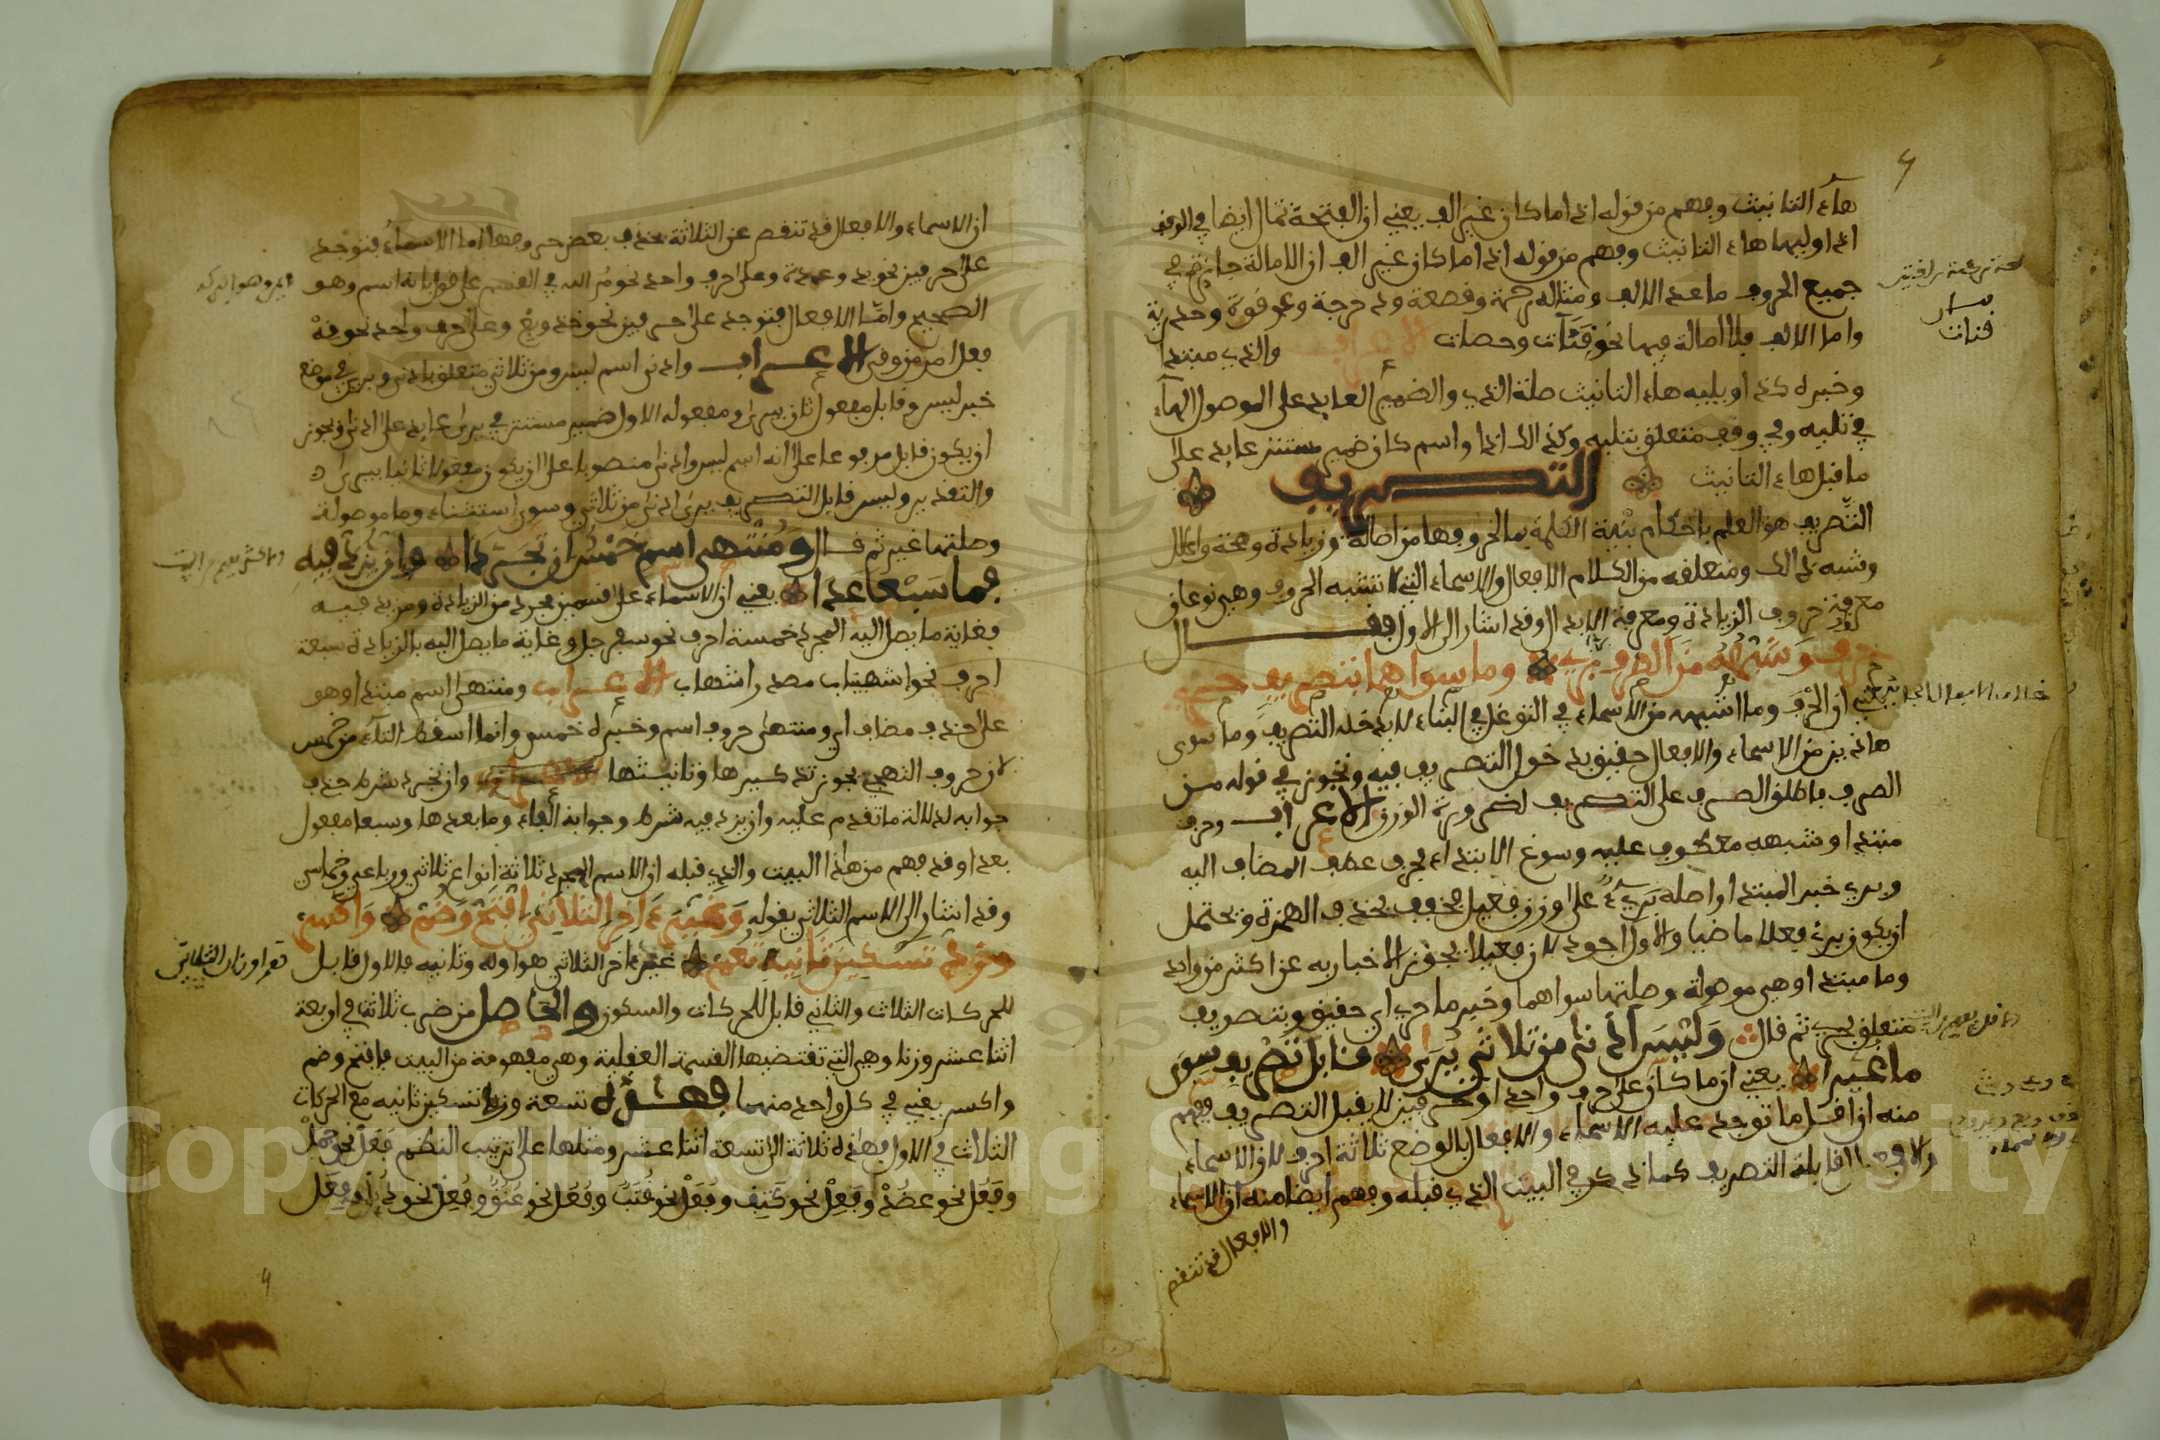 هاء التانيث وفهم من قوله اذا ما كان غير الف يعني ان الفتحة تمال ايضا في الوقف
اذا وليها هاء التانيث وفهم من قوله اذا ما كان غير الف ان الامالة جايزة في
جميع الحروف ما عدا الالف ومثاله رحمة وقصعة ودحرجة وعرقوة وحذرية
واما الالف فلا امالة فيها نحو قتات وحصات الاعراب والذي مبتدا
وخبره كذا ويليه هاء التانيث صلة الذي والضمير العايد على الموصول الهاء
في تليه وفي وقف متعلق بتليه وكذلك اذا واسم كان ضمير مستتر عايد على
ما قبل هاء التانيث التصريف
التصريف هو العلم باحكام بنية الكلمة بما لحروفها من اصالة وزيادة وصحة واعلال
وشبه ذلك ومتعلقه من الكلام الافعال والاسماء التي لا تشبه الحروف وهي نوعان
معرفة حروف الزيادة ومعرفة الابدال وقد اشار الى الاول فقال
حرف وشبهه من الصرف بري وما سواهما بتصريف حري
يعني ان الحرف وما اشبهه من الاسماء في التوغل في البناء لا يدخله التصريف وما سوى
هاذين من الاسماء والافعال حقيق بدخول التصريف فيه وتجوز في قوله من
الصرف فاطلق الصرف على التصريف لضرورة الوزن الاعراب وحرف
مبتدا وشبهه معطوف عليه وسوغ الابتداء بحرف عطف المضاف اليه
وبري خبر المبتدا واصله بريء على وزن فعيل فخفف بحذف الهمزة ويحتمل
ان يكون بري فعلا ماضيا والاول اجود لان فعيلا يجوز الاخبار به عن اكثر من واحد
وما مبتدا وهي موصولة وصلتها سواهما وخبر ما حري اي حقيق وبتصريف
متعلق بحري ثم قال وليس ادنى من ثلاثي يرى قابل تصريف سوى
ما غيرا يعني ان ما كان على حرف واحد او حرفين لا يقبل التصريف ففهم
منه ان اقل ما توجد عليه الاسماء والافعال بالوضع ثلاثة احرف لان الاسماء
والافعال قابلة التصريف كما ذكر في البيت الذي قبله وفهم ايضا منه ان الاسماء
والافعال قد تنقص
ان الاسماء والافعال قد تنقص عن الثلاثة بحذف بعض حروفها اما الاسماء فتوجد
على حرفين نحو يد وعدة وعلى حرف واحد نحو م الله في القسم على القول بانه اسم وهو
الصحيح واما الافعال فتوجد على حرفين نحو خذ وبع وعلى حرف واحد نحو قه
فعل امر من وقى الاعراب وادنى اسم ليس ومن ثلاثي متعلق بادنى ويرى في موضع
خبر ليس وقابل مفعول ثان بيرى ومفعوله الاول ضمير مستتر في يرى عايد على ادنى ويجوز
ان يكون قابل مرفوعا على انه اسم ليس وادنى منصوبا على ان يكون مفعولا ثانيا بيرى
والتقدير وليس قابل التصريف يرى ادنى من ثلاثي وسوى استثناء وما موصولة
وصلتها غير ثم قال ومنتهى اسم خمس ان تجردا وان يزد فيه
فما سبعا عدا يعني ان الاسماء على قسمين مجرد من الزيادة ومزيد فيه
فغاية ما يصل اليه المجرد خمسة احرف نحو سفرجل وغاية ما يصل اليه بالزيادة سبعة
احرف نحو اشهيباب مصدر اشهاب الاعراب ومنتهى اسم مبتدا وهو
على حذف مضاف اي ومنتهى حروف اسم وخبره خمس وانما اسقط التاء من خمس
لان حروف التهجي يجوز تذكيرها وتانيثها وان تجرد شرط حذف
جوابه لدلالة ما تقدم عليه وان يزد فيه شرط وجوابه الفاء وما بعدها وسبعا مفعول
بعدا وقد فهم من هذا البيت والذي قبله ان الاسم المجرد ثلاثة انواع ثلاثي ورباعي وخماسي
وقد اشار الى الاسم الثلاثي بقوله وغير ءاخر الثلاثي افتح وضم واكسر
وزد تسكين ثانيه تعم غير ءاخر الثلاثي هو اوله وثانيه فالاول قابل
للحركات الثلاث والثاني قابل للحركات والسكون والحاصل من ضرب ثلاثة في اربعة
اثنا عشر وزنا وهي التي تقتضيها القسمة العقلية وهي مفهومة من البيت فافتح وضم
واكسر يعني في كل واحد منهما فهذه تسعة وزد تسكين ثانيه مع الحركات
الثلاث في الاول فهذه ثلاثة الى تسعة اثنا عشر ومثلها على ترتيب النظم فعل نحو جمل
وفعل نحو عضد وفعل نحو كتف وفعل نحو عنب وفعل نحو عنق وفعل نحو دئل وفعل